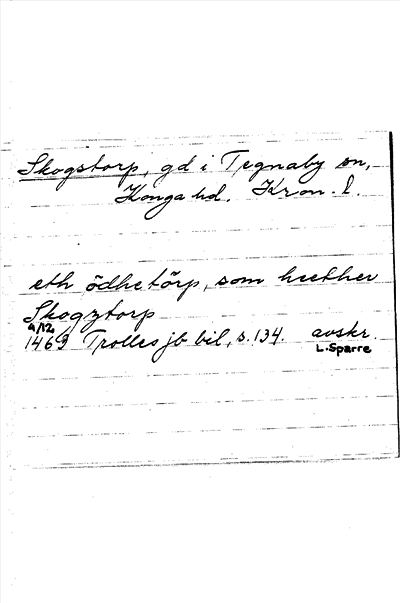 Skogstorp, gd i Tegnaby sn,
Konga hd. Kron. l.
eth ödhe törp, som heether
Skogztorp
9/12
1463 Trolles jb bil, s. 134. avskr.
L. Sparre